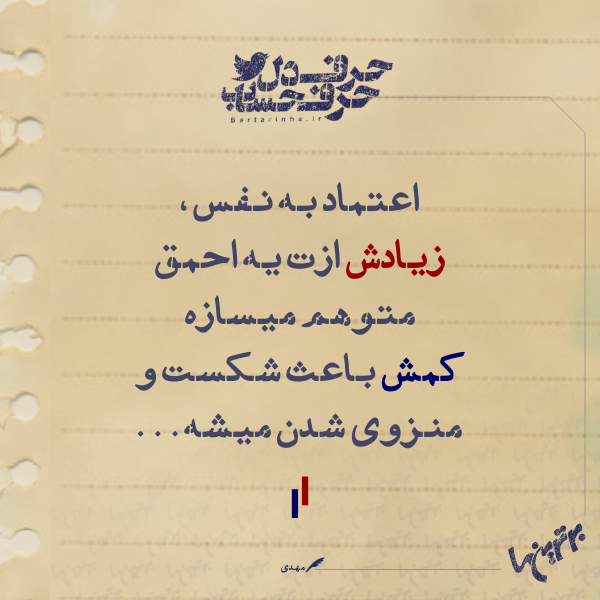 حرف دل
حرف حساب
Bartarinha.ir
اعتماد به نفس ،
زیادش ازت یه احمق
متوهم میسازه
کمش باعث شکست و
منزوی شدن میشه...
مهدی
برترین ها